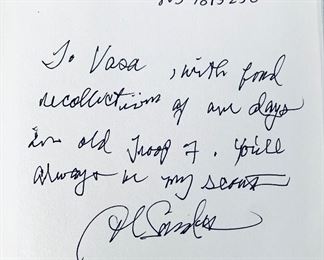 To Vasa, with fond
recollections of our days
in old Troop 7. You'll
always be my scout